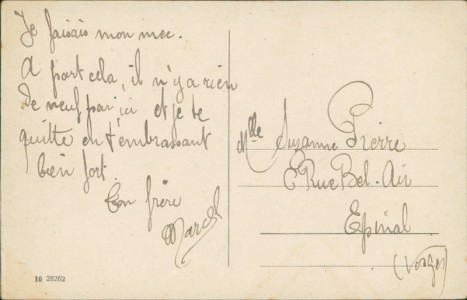 Je faisais mon mec.
A part cela, il n'y a rien
de neuf par ici et je te
quitte en t'embrassant
bien fort.
Ton frère
Marcel
Mlle Suzanne Pierre
Rue Bel-Air
Epinal
(Vosges)
10 28262